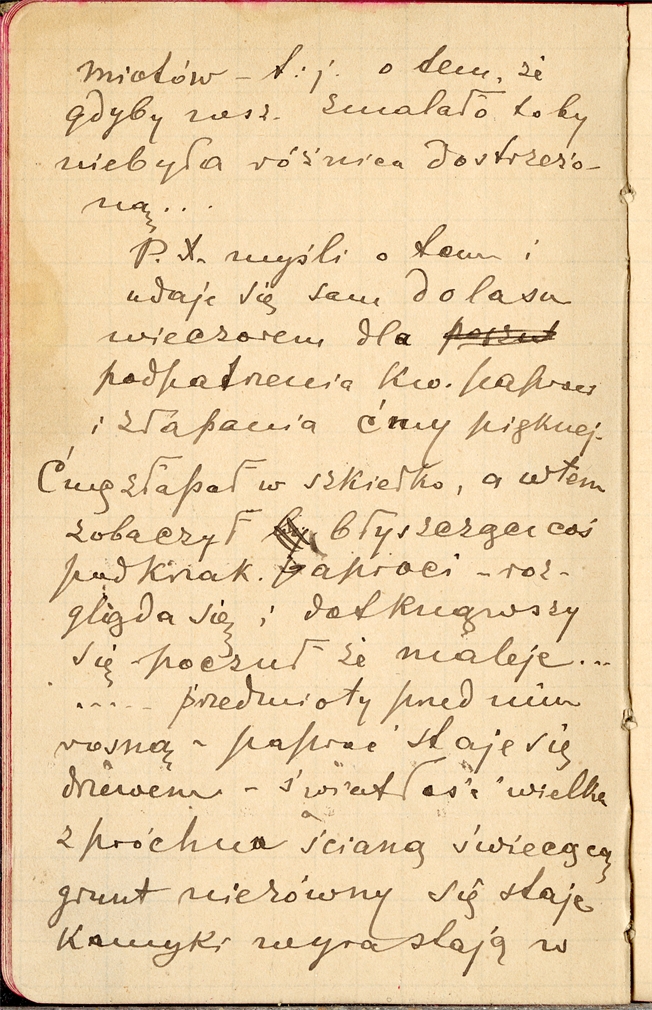 miotów – t.j. o tem, że
gdyby wsz. zmalało toby
niebyła różnica dostrzeżo-
ną...
P. X. myśli o tem i
udaje się sam do lasu
wieczorem dla poszuk
podpatrzenia kw. paproci
i złapania ćmy pięknej.
Ćmę złapał w szkiełko, a wtem
zobaczył błyszczące coś
pod krzak. paproci – roz-
gląda się i dotknąwszy
się poczuł że maleje...
..... przedmioty przed nim
rosną – paproć staje się
drzewem – światłość wielka
z próchna ścianą świecącą
grunt nierówny się staje
Kamyki wyrastają w